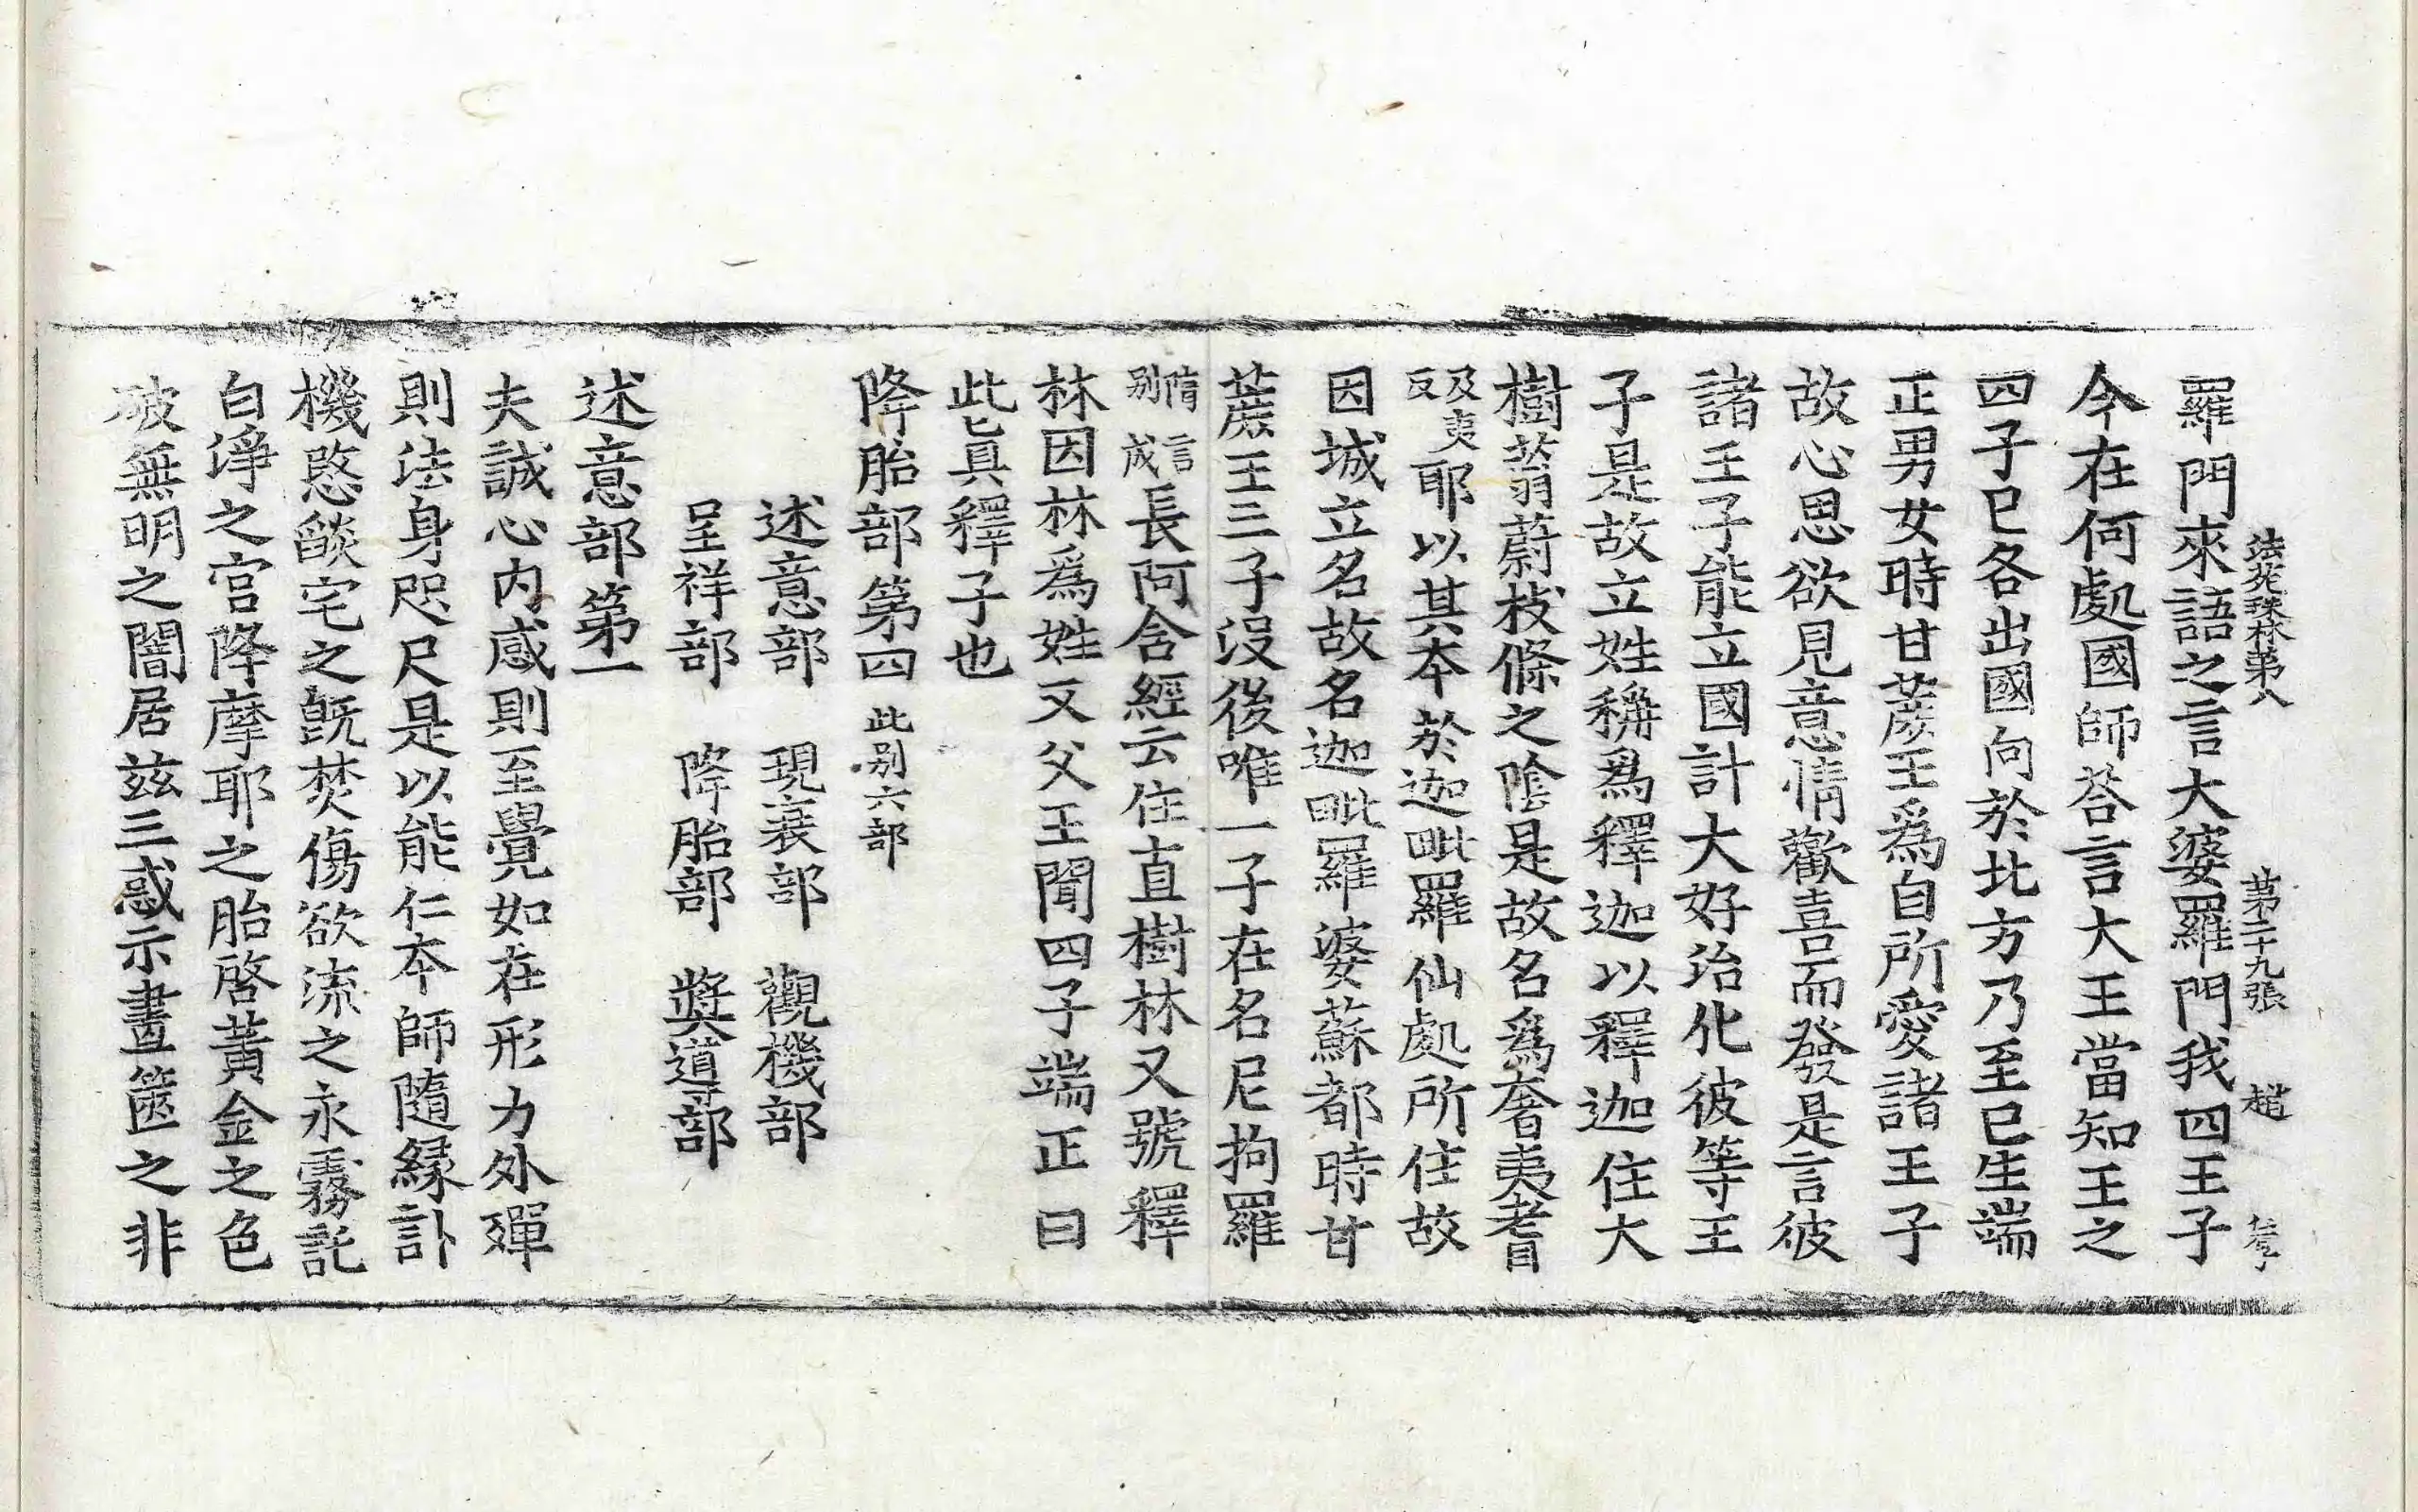 法苑珠林第八 第二十九張 趙
羅門來語之言大婆羅門我四王子
今在何處國師荅言大王當知王之
四子已各出國向於北方乃至已生端
正男女時甘蔗王爲自所愛諸王子
故心思欲見意情歡喜而發是言彼
諸王子能立國計大好治化彼等王
子是故立姓稱爲釋迦以釋迦住大
樹蓊蔚枝條之陰是故名爲奢夷耆
及夷反耶以其本於迦毗羅仙處所住故
因城立名故名迦毗羅婆蘇都時甘
蔗王三子沒後唯一子在名尼拘羅
隋言別成長阿含經云住直樹林又號釋
林因林爲姓又父王聞四子端正曰
此眞釋子也
降胎部第四 此别六部
述意部 現衰部 觀機部
呈祥部 降胎部 奬道部
述意部第一
夫誠心內感則至覺如在形力外殫
則法身咫尺是以能仁本師隨緣訃
機愍燄宅之旣焚傷欲流之永霧託
白淨之宫降摩耶之胎啓黃金之色
破無明之闇居兹三惑示畫篋之非